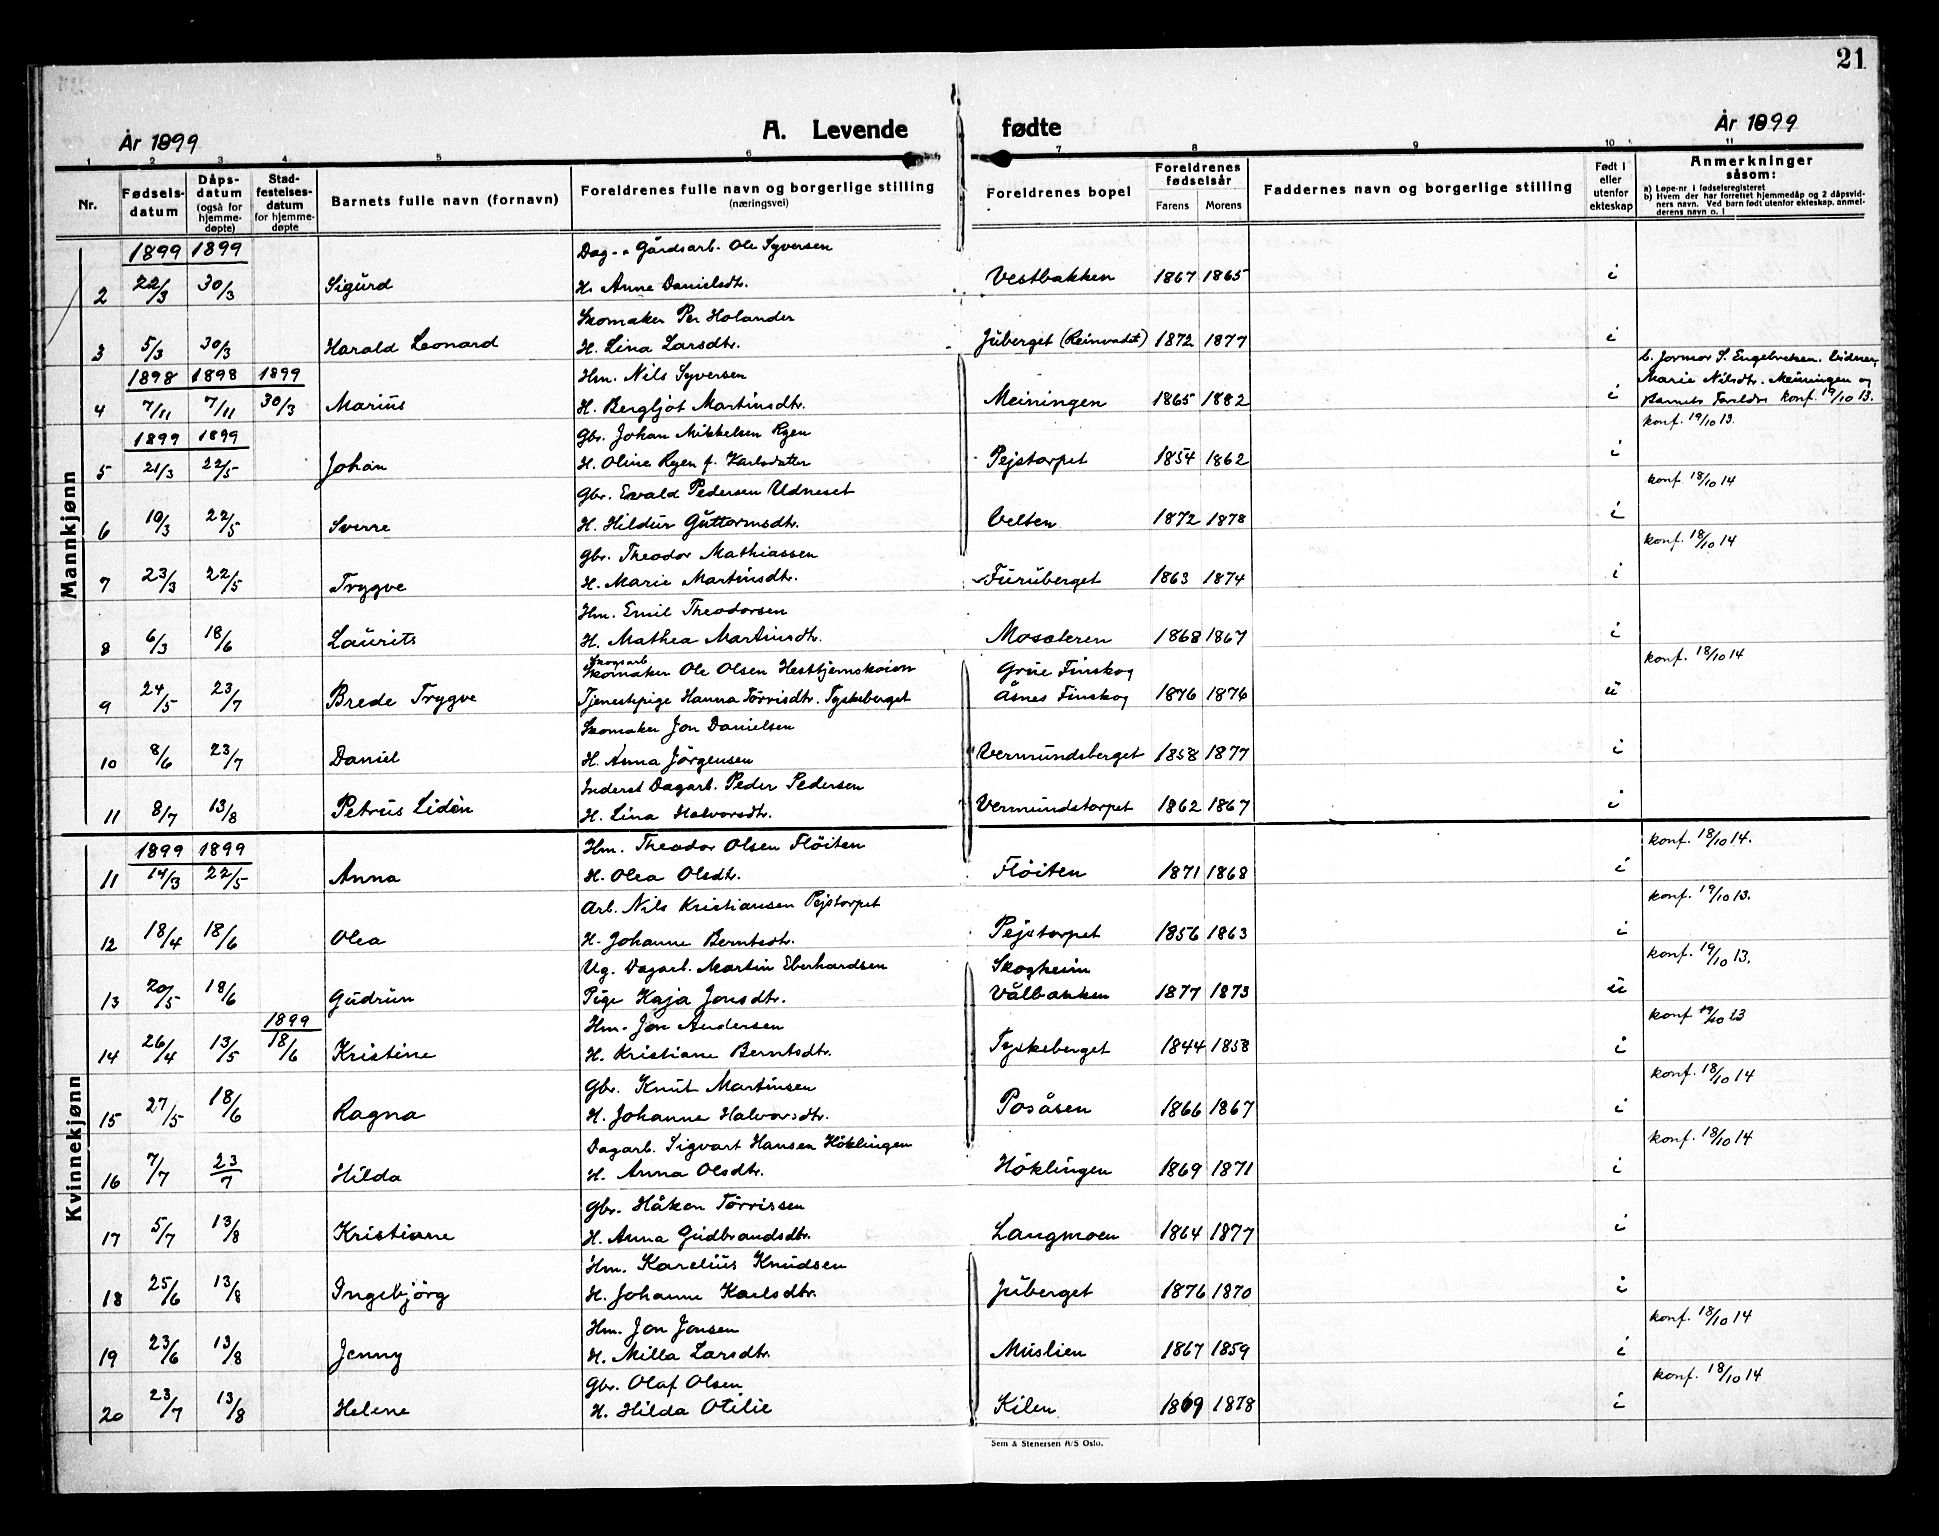 21
År 1899 A. Levende fødte År 1899
1 2 3 4 5 6 7 8 9 10 11
Nr. Fødsels-datum Dåps-datum (også for hjemme-døpte) Stad-festelses-datum for hjemme-døpte Barnets fulle navn (fornavn) Foreldrenes fulle navn og borgerlige stilling (næringsvei) Foreldrenes bopel Foreldrenes fødselsår Farens Morens Faddernes navn og borgerlig stilling Født i eller utenfor ekteskap Anmerkninger såsom: a) Løpe-nr i fødselsregisteret b) Hvem der har forrettet hjemmedåp og 2 dåpsvidners navn. Ved barn født utenfor ekteskap, anmelderens navn o. l
Mannkjønn
1899 1899 Dag- . Gårdsarb. Ole Syversen
2 22/3 30/3 Sigurd H. Anne Danielsdtr. Vestbakken 1867 1865 i
Skomaker Per Holander
3 5/3 30/3 Harald Leonard H. Lina Larsdtr. Juberget 1872 1877 i
1898 1898 1899 Hm. Nils Syversen b. Jormor S. Engebretsen
Marie Nilsdtr. Meiningen og
4 7/11 7/11 30/3 Marius H. Bergljot Martinsdtr. Meiningen 1865 1882 i Barnets Foreldre konf. 19/10 13.
1899 1899 Gbr. Johan Mikkelsen Ryen konf. 19/10 13.
5 21/3 22/5 Johan H. Oline Ryen f. Karlsdatter Pejstorpet 1854 1862 i
Gbr. Evald Pedersen Udneset konf. 18/10 14
6 10/3 22/5 Sverre H. Hildur Guttormsdtr. Velten 1872 1878 i
Gbr. Theodor Mathiassen konf. 18/10 14
7 23/3 22/5 Trygve H. Marie Martinsdtr. Furuberget 1863 1874 i
Hm. Emil Theodorsen
8 6/3 18/6 Laurits H. Mathea Martinsdtr. Mosæteren 1868 1867 i
Skogsarb
Skomaker Ole Olsen Hesttjernskoien Grue Finskog konf. 18/10 14
9 24/5 23/7 Brede Trygve Tjenestepige Hanna Törrisdtr. Tyskeberget Åsnes Finskog 1876 1876 u
Skomaker Jon Danielsen
10 8/6 23/7 Daniel H. Anna Jörgensen Vermundsberget 1858 1877 i
Inderst Dagarb. Peder Pedersen
11 8/7 13/8 Petrus Lidön H. Lina Halvorsdtr. Vermundstorpet 1862 1867 i
Kvinnekjønn
1899 1899 Hm. Theodor Olsen Flöiten konf. 18/10 14.
11 14/3 22/5 Anna H. Olea Olsdtr. Flöiten 1871 1868 i
Arb. Nils Kristiansen Pejstorpet konf. 19/10 13.
12 18/4 18/6 Olea H. Johanne Berntsdtr. Pejstorpet 1856 1863 i
Ug. Dagarb. Martin Eberhardsen Skogheim konf. 19/10 13.
13 20/5 18/6 Gudrun Pige Kaja Jonsdtr. Vålbakken 1877 1873 u
1899 Hm. Jon Andersen konf 19/10 13
14 26/4 13/5 18/6 Kristine H. Kristiane Berntsdtr. Tyskeberget 1844 1858 i
Gbr. Knut Martinsen konf. 18/10 14
15 27/5 18/6 Ragna H. Johanne Halvorsdtr. Posåsen 1866 1867 i
Dagarb. Sigvart Hansen Höklingen konf. 18/10 14
16 7/7 23/7 Hilda H. Anna Olsdtr. Höklingen 1869 1871 i
Gbr. Håkon Törrissen
17 5/7 13/8 Kristiane H. Anna Gudbrandsdtr. Langmoen 1864 1877 i
Hm. Karelius Knudsen
18 25/6 13/8 Ingebjörg H. Johanne Karlsdtr. Juberget 1876 1870 i
Hm. Jon Jonsen konf. 18/10 14
19 23/6 13/8 Jenny H. Milla Larsdtr. Muslien 1867 1859 i
Gbr. Olaf Olsen konf. 18/10 14
20 23/7 13/8 Helene H. Hilda Otilie Kilen 1869 1878 i
Sem & Stenersen A/S Oslo.